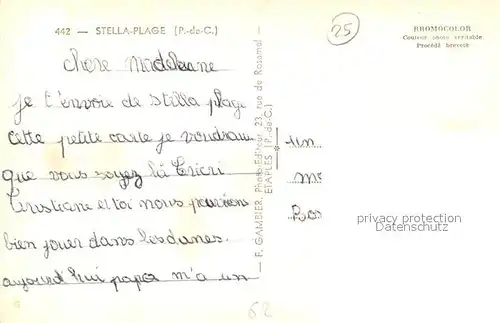 442 — STELLA-PLAGE (P.-de-C.)
25
BROMOCOLOR
Couleur photo véritable
Procédé breveté
chere Madeleine
je t'envoie de stella plage
cette petite carte je voudrais
que vous soyez là Cricri
Cristiane et toi nous pourions
bien jouer dans les dunes.
aujourd'hui papa m'a un
— F. GAMBIER, Photo-Editeur, 23, rue de Rosamel —
ETAPLES (P.-de-C.)
privacy protection
Datenschutz
62